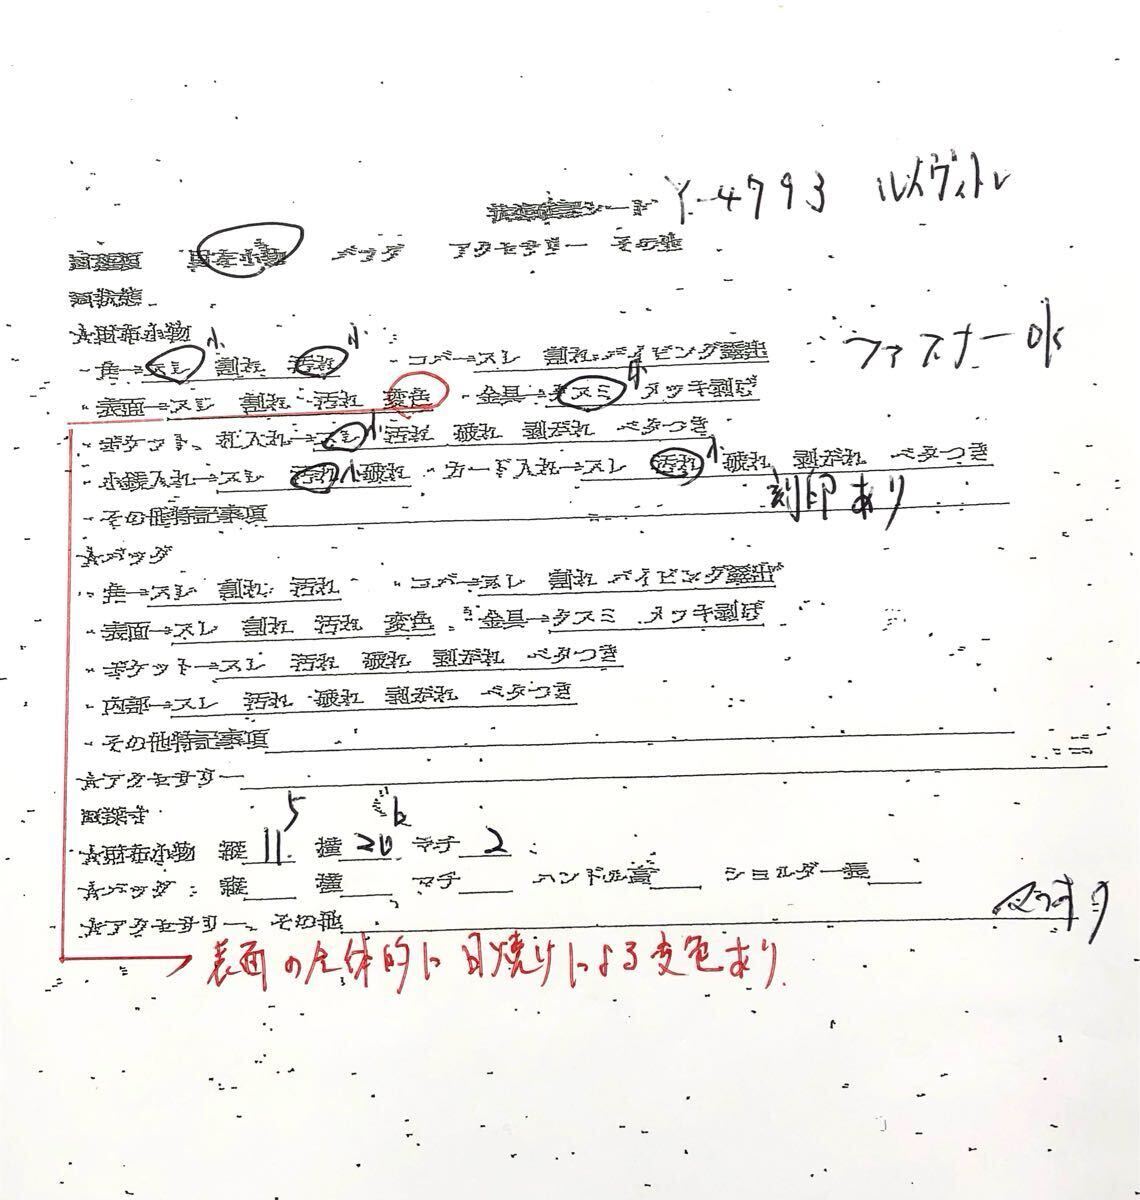 状態確認シート Y-4793 ルイヴィトン
財布小物 バッグ アクセサリー その他
状態
☆財布小物
ファスナーOK
・角→スレ小 割れ 汚れ小 ・コバ→スレ 割れ パイピング露出
・表面→スレ 割れ 汚れ 変色 ・金具→クスミ中 メッキ剥げ
・ポケット、札入れ→スレ小 汚れ 破れ 剥がれ ベタつき
・小銭入れ→スレ 汚れ小 破れ ・カード入れ→スレ 汚れ小 破れ 剥がれ ベタつき
・その他特記事項 刻印あり
☆バッグ
・角→スレ 割れ 汚れ ・コバ→スレ 割れ パイピング露出
・表面→スレ 割れ 汚れ 変色 ・金具→クスミ メッキ剥げ
・ポケット→スレ 汚れ 破れ 剥がれ ベタつき
・内部→スレ 汚れ 破れ 剥がれ ベタつき
・その他特記事項
☆アクセサリー
採寸
☆財布小物 縦 11 横 20 マチ 2
☆バッグ: 縦 横 マチ ハンドル高 ショルダー長
☆アクセサリー、その他
表面の全体的に日焼けによる変色あり